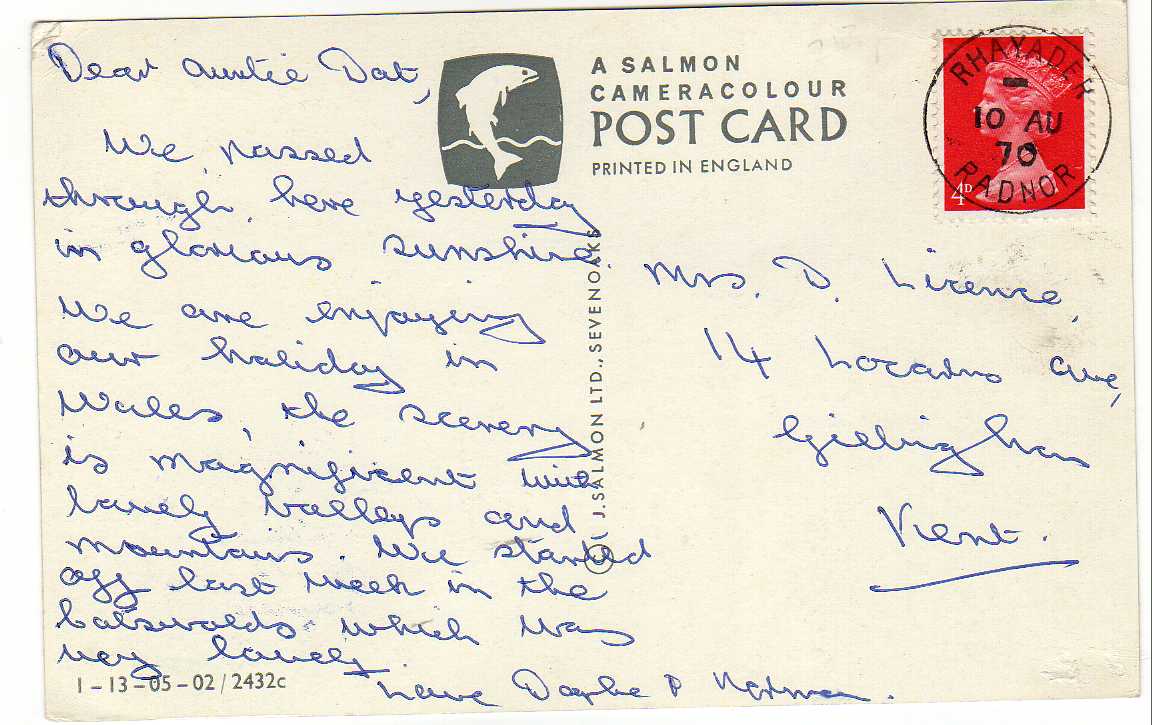 Dear Auntie Dot,
We passed
through here yesterday
in glorious sunshine.
We are enjoying
our holiday in
Wales, the scenery
is magnificent with
lovely valleys and
mountains. We started
off last week in the
Cotswolds which was
very lovely.
Love Daphne & Norman.
1-13-05-02/2432c
A SALMON
CAMERACOLOUR
POST CARD
PRINTED IN ENGLAND
© J. SALMON LTD., SEVENOAKS
RHAYADER
10 AU
70
RADNOR
4D
Mrs. D.
14 Ave,
Gillingham
Kent.